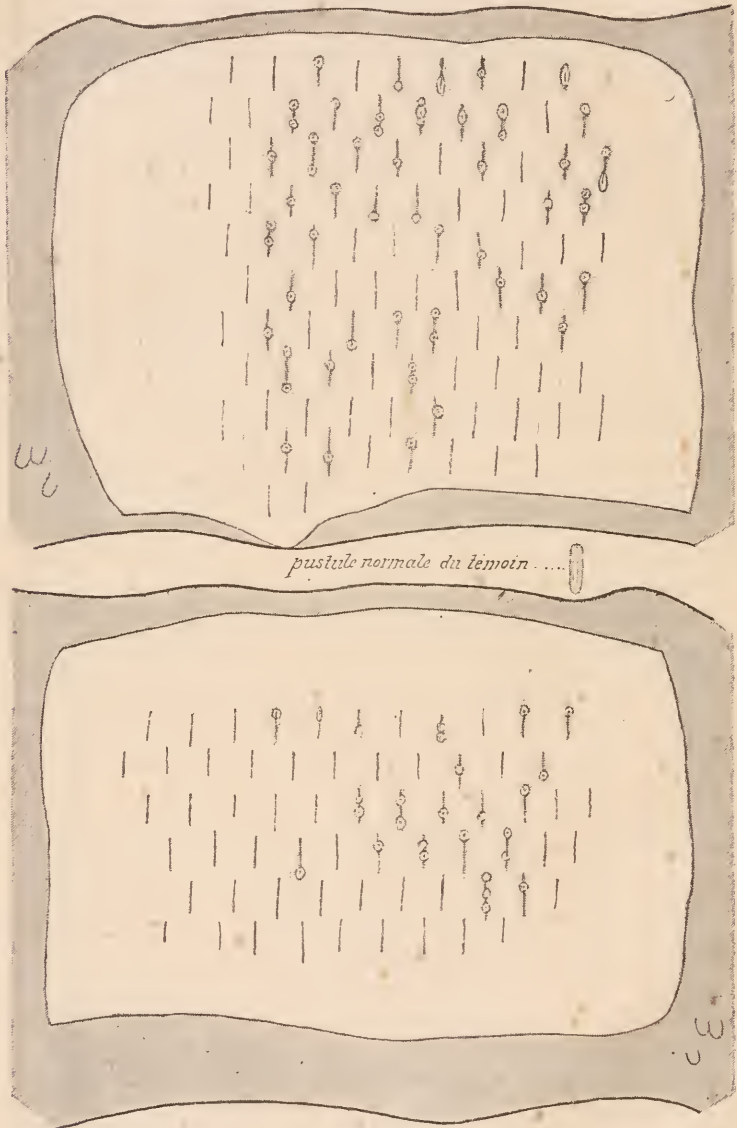 pustule normale du témoin .....